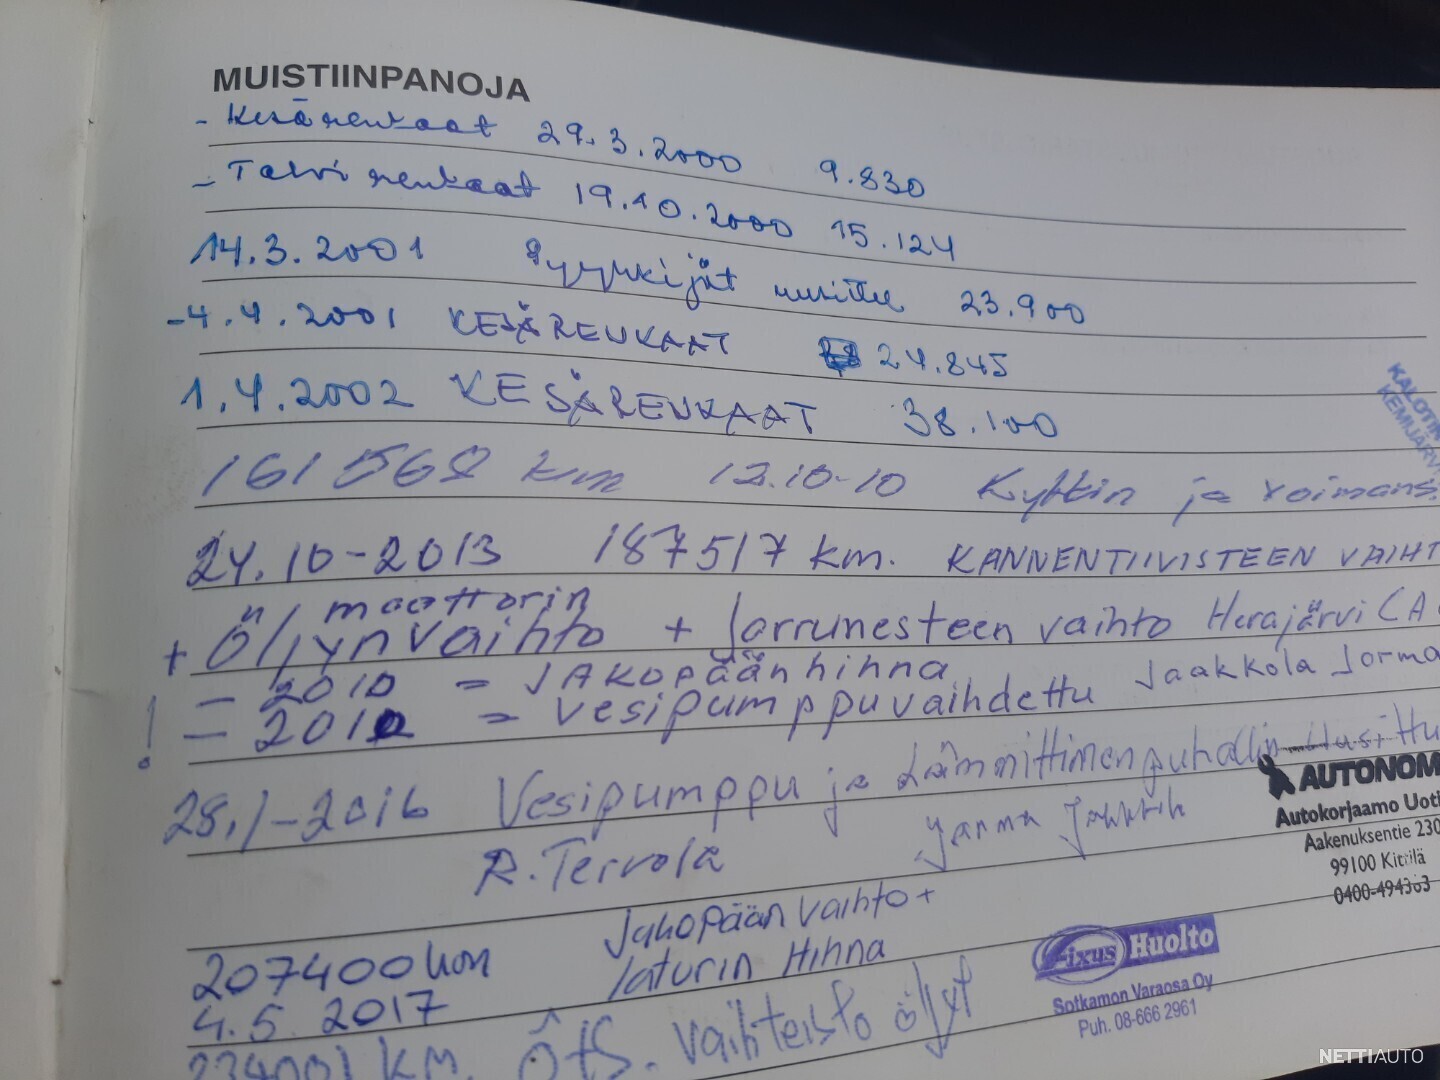 MUISTIINPANOJA
- Kesärenkaat 29.3.2000 9.830
- Talvirenkaat 19.10.2000 15.124
14.3.2001 Pyyhkijät uusittu 23.900
- 4.4.2001 KESÄRENKAAT 24.845
1.4.2002 KESÄRENKAAT 38.100
161568 km 12.10-10 Kytkin ja voimans.
24.10-2013 187517 km. KANNENTIIVISTEEN VAIHT
moottorin
+ Öljynvaihto + Jarrunesteen vaihto Herajärvi CA
- 2010 = JAKOPÄÄNHIHNA
! - 2012 = vesipumppu vaihdettu Jaakkola Jorma
28.1-2016 Vesipumppu ja Lämmittimenpuhallin uusittu
R. Tervola Janna
207400 km Jakopään vaihto +
4.5.2017 laturin Hihna
234001 km. vaihteisto öljyt
KALOTIN
KEMIJÄRV
AUTONOM
Autokorjaamo Uoti
Aakenuksentie 230
99100 Kittilä
0400-494363
Fixus Huolto
Sotkamon Varaosa Oy
Puh. 08-666 2961
NETTIAUTO